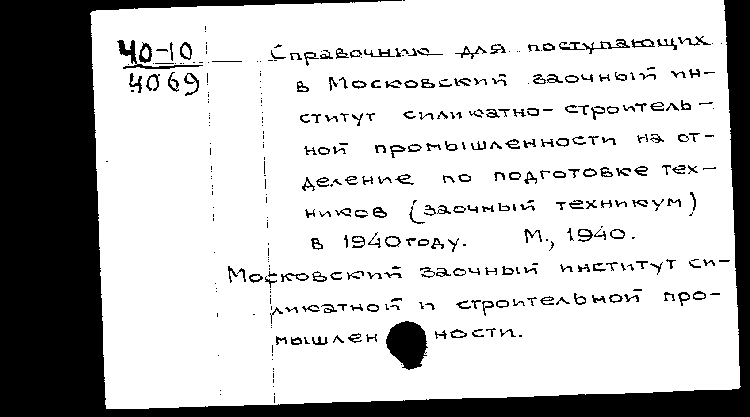 40-10
4069
Справочник для поступающих
в Московский заочный ин-
ститут силикатно-строитель-
ной промышленности на от-
деление по подготовке тех-
ников (заочный техникум)
в 1940 году. М., 1940.
Московский заочный институт си-
ликатной и строительной про-
мышленности.